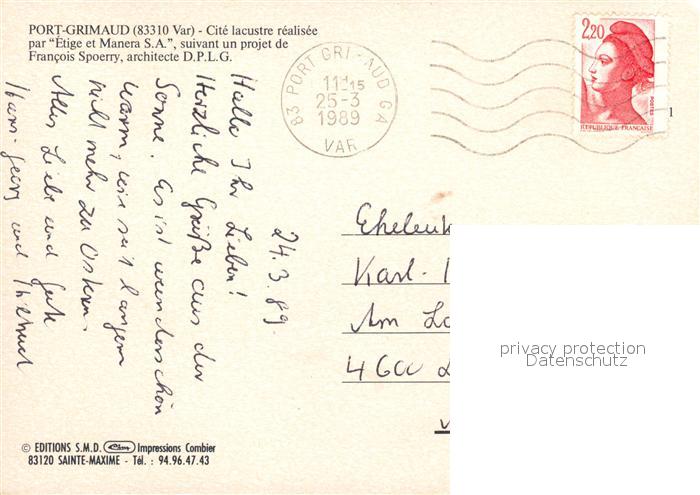 PORT-GRIMAUD (83310 Var) - Cité lacustre réalisée
par "Étige et Manera S.A.", suivant un projet de
François Spoerry, architecte D.P.L.G.
83 PORT GRI-AUD GA
11H15
25-3
1989
VAR
2,20
POSTES
REPUBLIQUE FRANCAISE
1
24.3.89.
Hallo Ihr Lieben!
Herzliche Grüße aus der
Sonne. Es ist wunderschön
warm, wie seit langem
nicht mehr zu Ostern.
Alles Liebe und Gute
Hans-Georg und
Eheleut
Karl-
Am Lo
4600
privacy protection
Datenschutz
© EDITIONS S.M.D. Cim Impressions Combier
83120 SAINTE-MAXIME - Tél. : 94.96.47.43